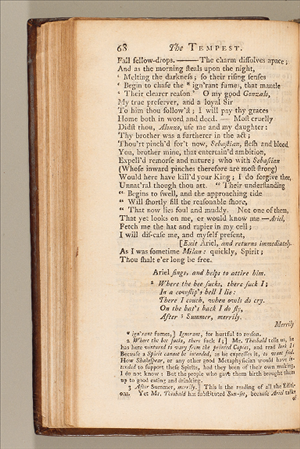 68 The TEMPEST.
Fall fellow-drops. —— The charm dissolves apace;
And as the morning steals upon the night,
' Melting the darkness; so their rising senses
' Begin to chase the * ign'rant fumes, that mantle
' Their clearer reason." O my good Gonzalo,
My true preserver, and a loyal Sir
To him thou follow'st; I will pay thy graces
Home both in word and deed. — Most cruelly
Didst thou, Alonso, use me and my daughter:
Thy brother was a furtherer in the act;
Thou'rt pinch'd for't now, Sebastian, flesh and blood.
You, brother mine, that entertain'd ambition,
Expell'd remorse and nature; who with Sebastian
(Whose inward pinches therefore are most strong)
Would here have kill'd your King; I do forgive thee,
Unnat'ral though thou art. " Their understanding
" Begins to swell, and the approaching tide
" Will shortly fill the reasonable shore,
" That now lies foul and muddy. Not one of them,
That yet looks on me, or would know me — Ariel,
Fetch me the hat and rapier in my cell;
I will dis-case me, and myself present,
[Exit Ariel, and returns immediately.
As I was sometime Milan: quickly, Spirit;
Thou shalt e'er long be free.
Ariel sings, and helps to attire him.
2 Where the bee sucks, there suck I;
In a cowslip's bell I lie:
There I couch, when owls do cry.
On the bat's back I do fly,
After 3 Summer, merrily.
Merrily
* ign'rant fumes,] Ignorant, for hurtful to reason.
2 Where the bee sucks, there suck I;] Mr. Theobald tells us, he
has here ventured to vary from the printed Copies, and read lurk I:
Because a Spirit cannot be intended, as he expresses it, to want food.
How Shakespear, or any other good Metaphysician would have in-
tended to support these Spirits, had they been of their own making,
I do not know: But the people who gave them birth brought them
up to good eating and drinking.
3 After Summer, merrily.] This is the reading of all the Editi-
ons. Yet Mr. Theobald has substituted Sun-set, because Ariel talks